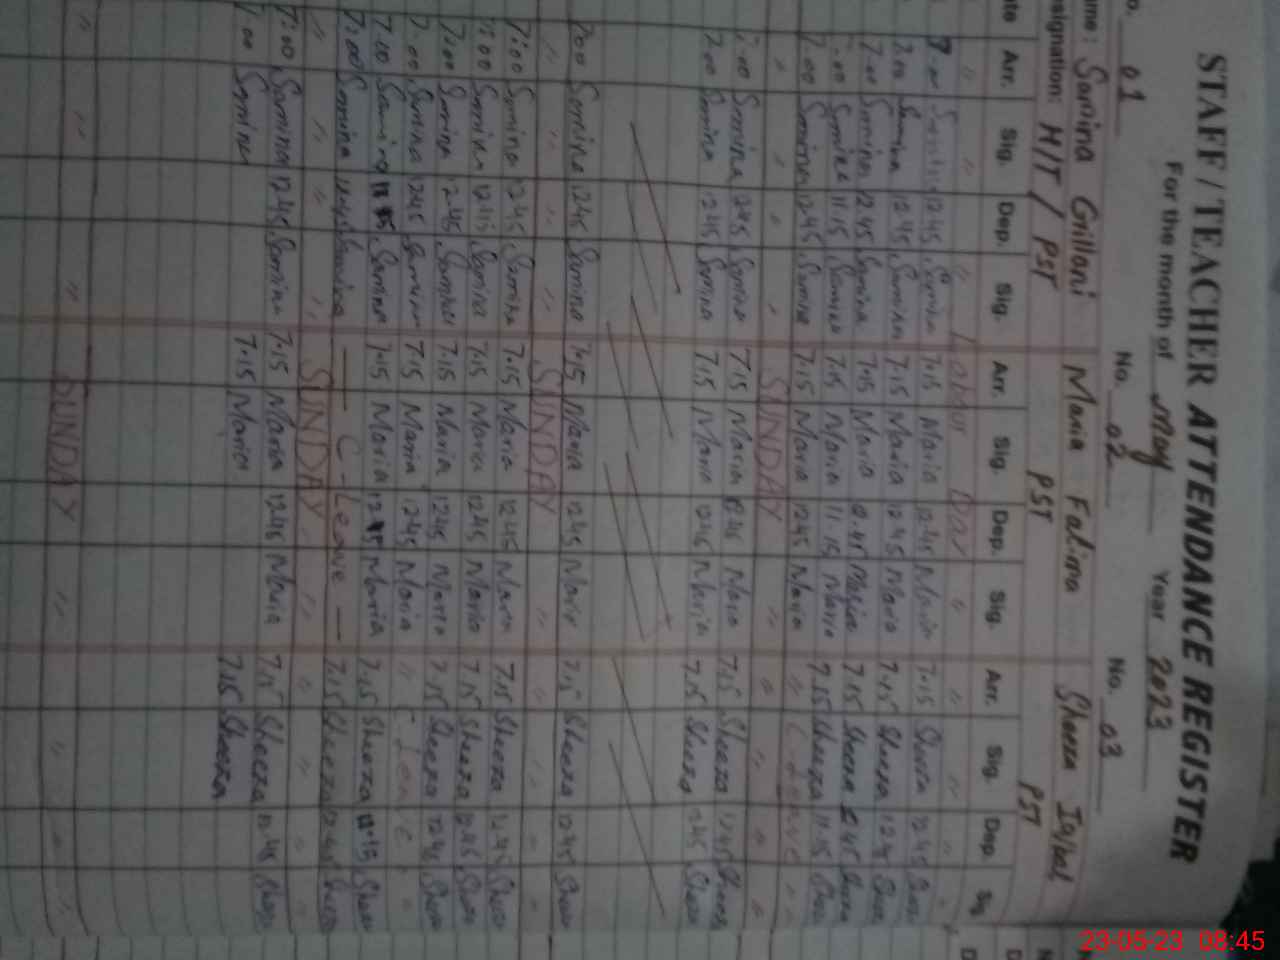 STAFF / TEACHER ATTENDANCE REGISTER
For the month of May Year 2023
No. 01 No. 02 No. 03
Name: Samina Gillani Maria Fatima Sheeza Iqbal
Designation: H/T / PST PST PST
Arr. Sig. Dep. Sig. Arr. Sig. Dep. Sig. Arr. Sig. Dep. Sig
" " " Labour Day " " " "
7.00 Samina 12.45 Samina 7.15 Maria 12.45 Maria 7.15 Sheeza 12.45 Sheeza
7.00 Samina 12.45 Samina 7.15 Maria 12.45 Maria 7.15 Sheeza 12.45 Sheeza
7.00 Samina 12.45 Samina 7.15 Maria 12.45 Maria 7.15 Sheeza 12.45 Sheeza
7.00 Samina 11.15 Samina 7.15 Maria 11.15 Maria 7.15 Sheeza 11.15 Sheeza
7.00 Samina 12.45 Samina 7.15 Maria 12.45 Maria " C-Leave "
" " " SUNDAY " " " "
7.00 Samina 12.45 Samina 7.15 Maria 12.45 Maria 7.15 Sheeza 12.45 Sheeza
7.00 Samina 12.45 Samina 7.15 Maria 12.45 Maria 7.15 Sheeza 12.45 Sheeza
7.00 Samina 12.45 Samina 7.15 Maria 12.45 Maria 7.15 Sheeza 12.45 Sheeza
" " " SUNDAY " " " "
7:00 Samina 12.45 Samina 7.15 Maria 12.45 Maria 7.15 Sheeza 12.45 Sheeza
7:00 Samina 12.45 Samina 7.15 Maria 12.45 Maria 7.15 Sheeza 12.45 Sheeza
7:00 Samina 12.45 Samina 7.15 Maria 12.45 Maria 7.15 Sheeza 12.45 Sheeza
7.00 Samina 12.45 Samina 7.15 Maria 12.45 Maria " C Leave "
7.00 Samina Samina 7.15 Maria Maria 7.15 Sheeza 11.15 Sheeza
7:00 Samina Samina — C-Leave — 7.15 Sheeza 12.45 Sheeza
" " " SUNDAY " " " "
7:00 Samina 12.45 Samina 7.15 Maria 12.45 Maria 7.15 Sheeza 12.45 Sheeza
7:00 Samina 7.15 Maria 7.15 Sheeza
" " " SUNDAY " " " "
23-05-23 08:45